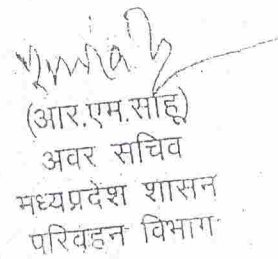 (आर.एम.साहू)
अवर सचिव
मध्यप्रदेश शासन
परिवहन विभाग